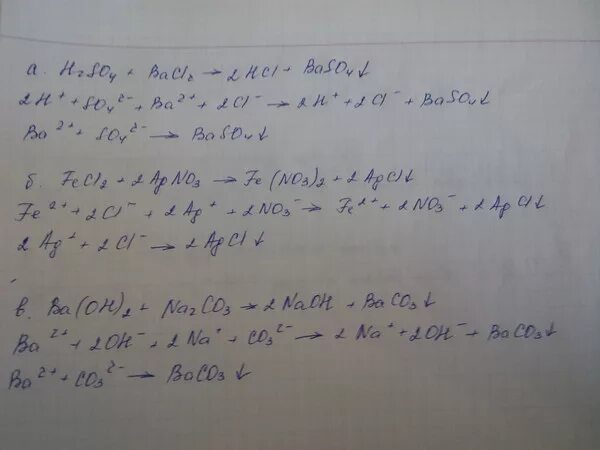 а. H₂SO₄ + BaCl₂ → 2HCl + BaSO₄↓
2H⁺ + SO₄²⁻ + Ba²⁺ + 2Cl⁻ → 2H⁺ + 2Cl⁻ + BaSO₄↓
Ba²⁺ + SO₄²⁻ → BaSO₄↓
б. FeCl₂ + 2AgNO₃ → Fe(NO₃)₂ + 2AgCl↓
Fe²⁺ + 2Cl⁻ + 2Ag⁺ + 2NO₃⁻ → Fe²⁺ + 2NO₃⁻ + 2AgCl↓
2Ag⁺ + 2Cl⁻ → 2AgCl↓
в. Ba(OH)₂ + Na₂CO₃ → 2NaOH + BaCO₃↓
Ba²⁺ + 2OH⁻ + 2Na⁺ + CO₃²⁻ → 2Na⁺ + 2OH⁻ + BaCO₃↓
Ba²⁺ + CO₃²⁻ → BaCO₃↓